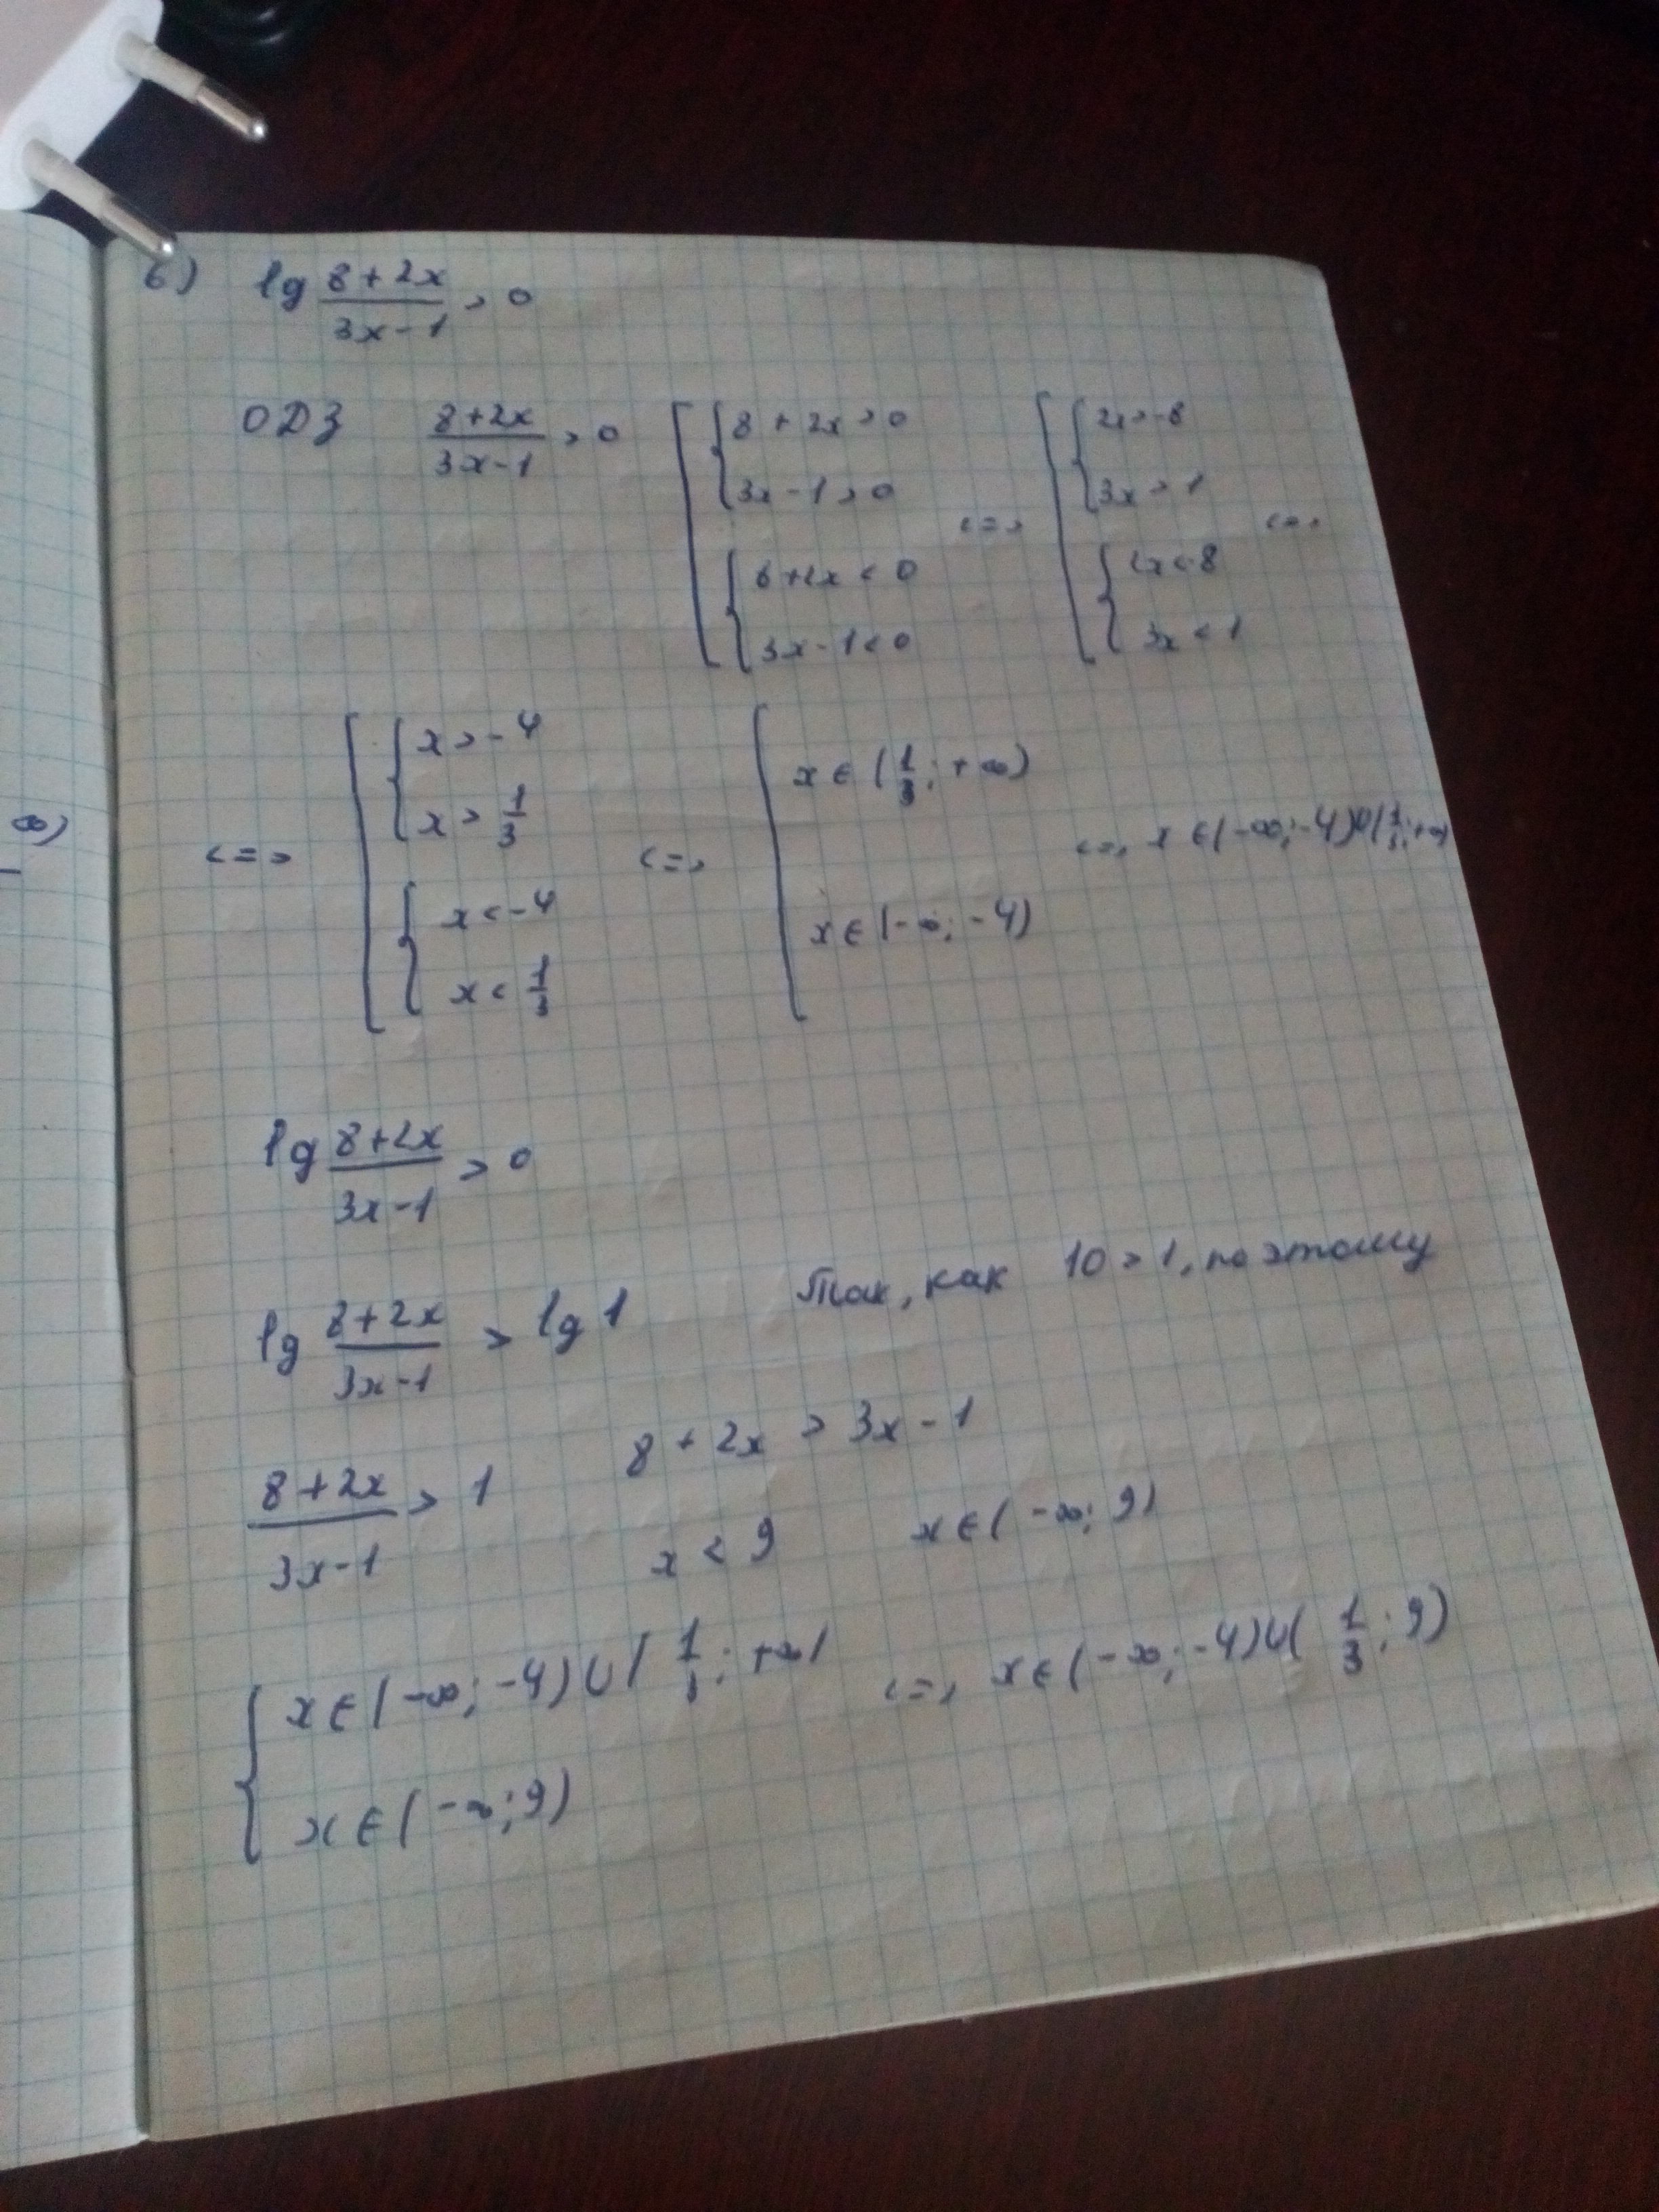 ∞)
6) lg (8+2x)/(3x-1) > 0
ОДЗ (8+2x)/(3x-1) > 0 [ { 8+2x>0 3x-1>0 { 8+2x<0 3x-1<0 <=> [ { 2x>-8 3x>1 { 2x<-8 3x<1 <=>
<=> [ { x>-4 x>1/3 { x<-4 x<1/3 <=> [ x∈(1/3;+∞) x∈(-∞;-4) <=> x∈(-∞;-4)∪(1/3;+∞)
lg (8+2x)/(3x-1) > 0
lg (8+2x)/(3x-1) > lg 1 Так, как 10>1, поэтому
(8+2x)/(3x-1) > 1 8+2x > 3x-1
x<9 x∈(-∞;9)
{ x∈(-∞;-4)∪(1/3;+∞) x∈(-∞;9) <=> x∈(-∞;-4)∪(1/3;9)